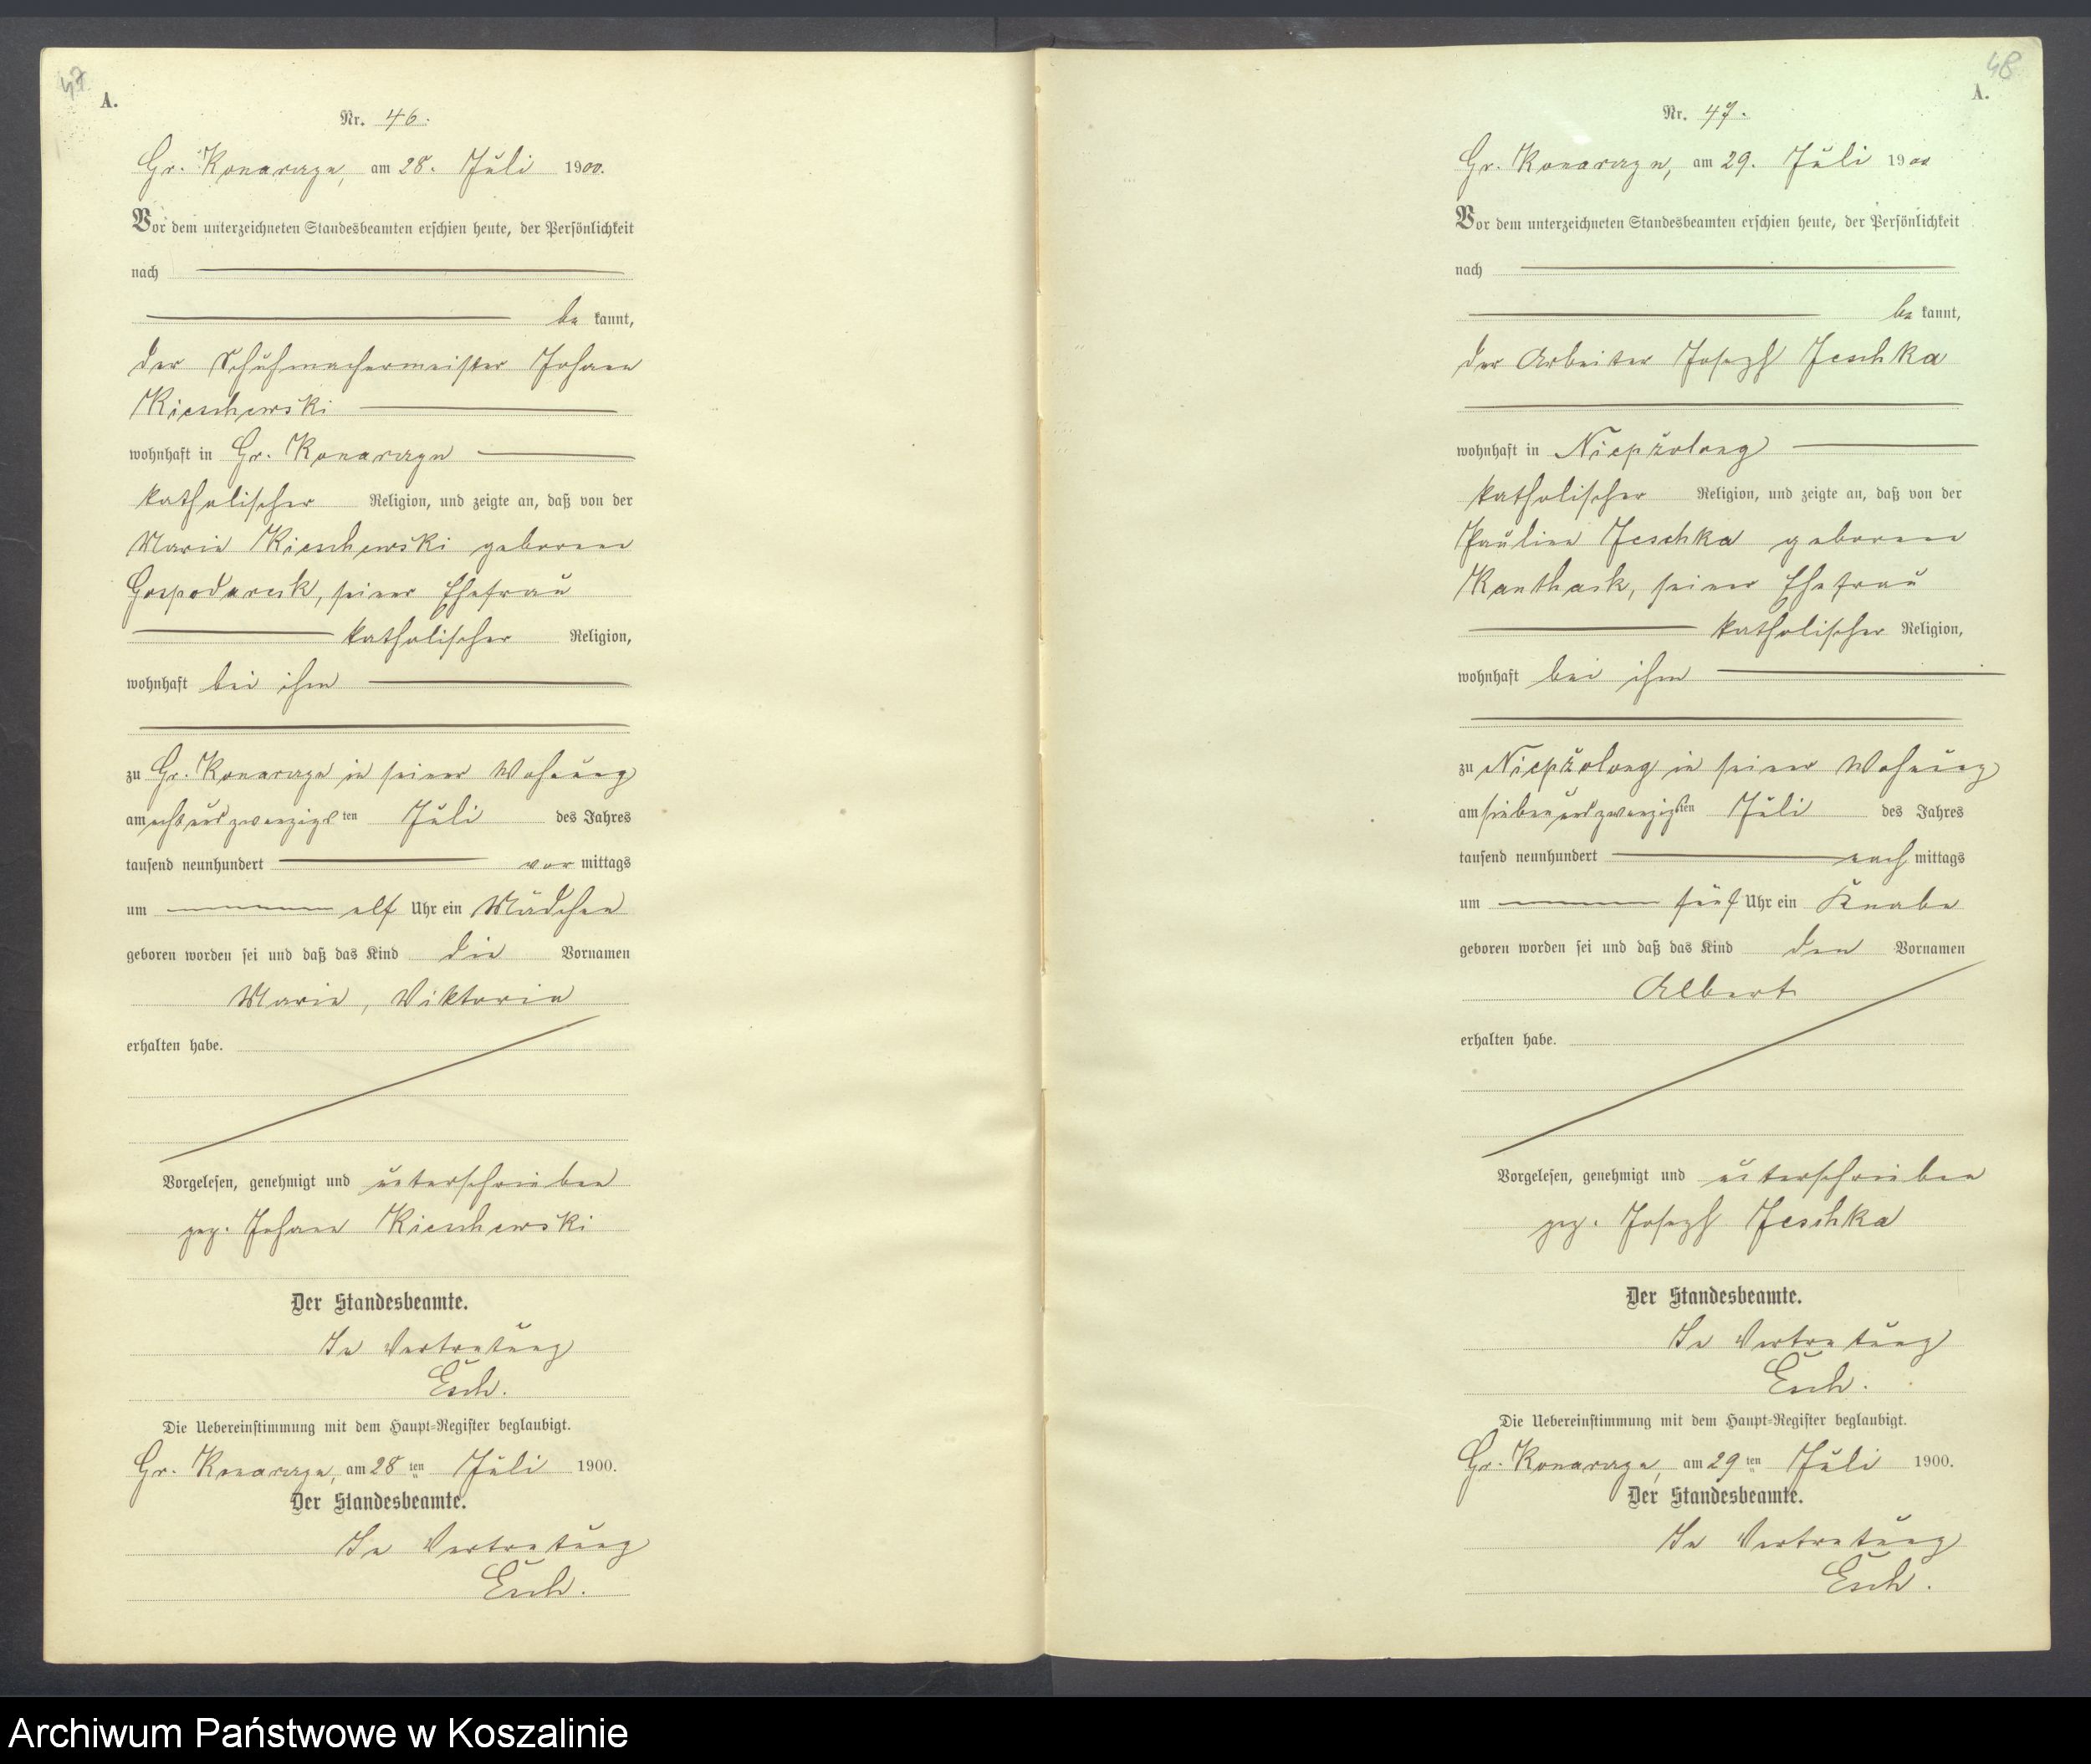 47
A.
Nr. 46.
Gr. Konarczyn, am 28. Juli 1900.
Vor dem unterzeichneten Standesbeamten erschien heute, der Persönlichkeit
nach
be kannt,
der Schuhmachermeister Johann
Kieschewski
wohnhaft in Gr. Konarczyn
katholischer Religion, und zeigte an, daß von der
Marie Kieschewski geborene
Gospodarek, seiner Ehefrau
katholischer Religion,
wohnhaft bei ihm
zu Gr. Konarczyn in seiner Wohnung
am achtundzwanzigsten Juli des Jahres
tausend neunhundert vor mittags
um elf Uhr ein Mädchen
geboren worden sei und daß das Kind die Vornamen
Marie, Viktoria
erhalten habe.
Vorgelesen, genehmigt und unterschrieben
gez. Johann Kieschewski
Der Standesbeamte.
In Vertretung
Esch.
Die Uebereinstimmung mit dem Haupt-Register beglaubigt.
Gr. Konarczyn, am 28 ten Juli 1900.
Der Standesbeamte.
In Vertretung
Esch.
48
A.
Nr. 47.
Gr. Konarczyn, am 29. Juli 1900
Vor dem unterzeichneten Standesbeamten erschien heute, der Persönlichkeit
nach
be kannt,
der Arbeiter Joseph Jeschka
wohnhaft in Niepżolong
katholischer Religion, und zeigte an, daß von der
Pauline Jeschka geborene
Kanthack, seiner Ehefrau
katholischer Religion,
wohnhaft bei ihm
zu Niepżolong in seiner Wohnung
am siebenundzwanzigsten Juli des Jahres
tausend neunhundert nach mittags
um fünf Uhr ein Knabe
geboren worden sei und daß das Kind den Vornamen
Albert
erhalten habe.
Vorgelesen, genehmigt und unterschrieben
gez. Joseph Jeschka
Der Standesbeamte.
In Vertretung
Esch.
Die Uebereinstimmung mit dem Haupt-Register beglaubigt.
Gr. Konarczyn, am 29 ten Juli 1900.
Der Standesbeamte.
In Vertretung
Esch.
Archiwum Państwowe w Koszalinie